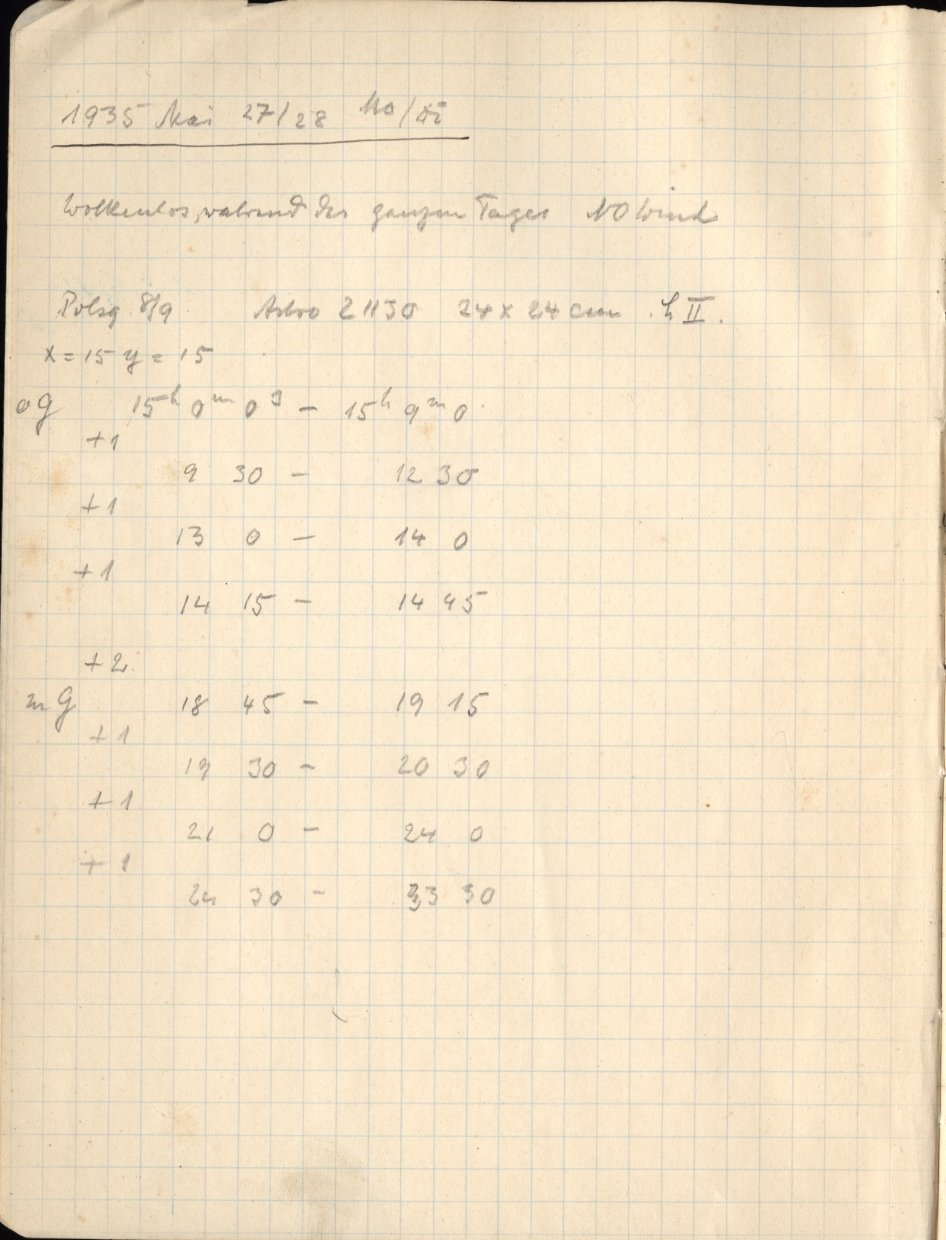 1935 Mai 27/28 Mo/Di
Wolkenlos, während des ganzen Tages NO Wind
Polsq 8/9 Astro Z 1130 24 x 24 cm h II.
x = 15 y = 15
oG 15h 0m 0s – 15h 9m 0
+1
9 30 – 12 30
+1
13 0 – 14 0
+1
14 15 – 14 45
+2
mG 18 45 – 19 15
+1
19 30 – 20 30
+1
21 0 – 24 0
+1
24 30 – 33 30